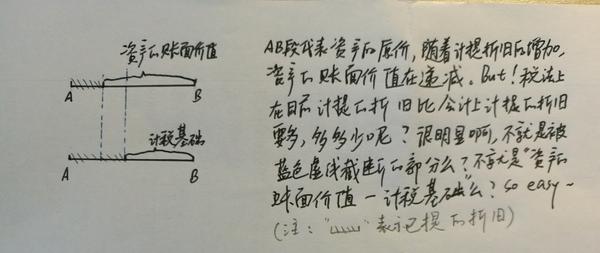 资产的账面价值
A
B
计税基础
A
B
AB段代表资产的原价，随着计提折旧的增加，
资产的账面价值在递减。But！税法上
在目前计提的折旧比会计上计提的折旧
要多，多多少呢？很明显啊，不就是被
蓝色虚线截断的部分么？不就是"资产的
账面价值－计税基础"么？so easy~
（注："" 表示已提的折旧）